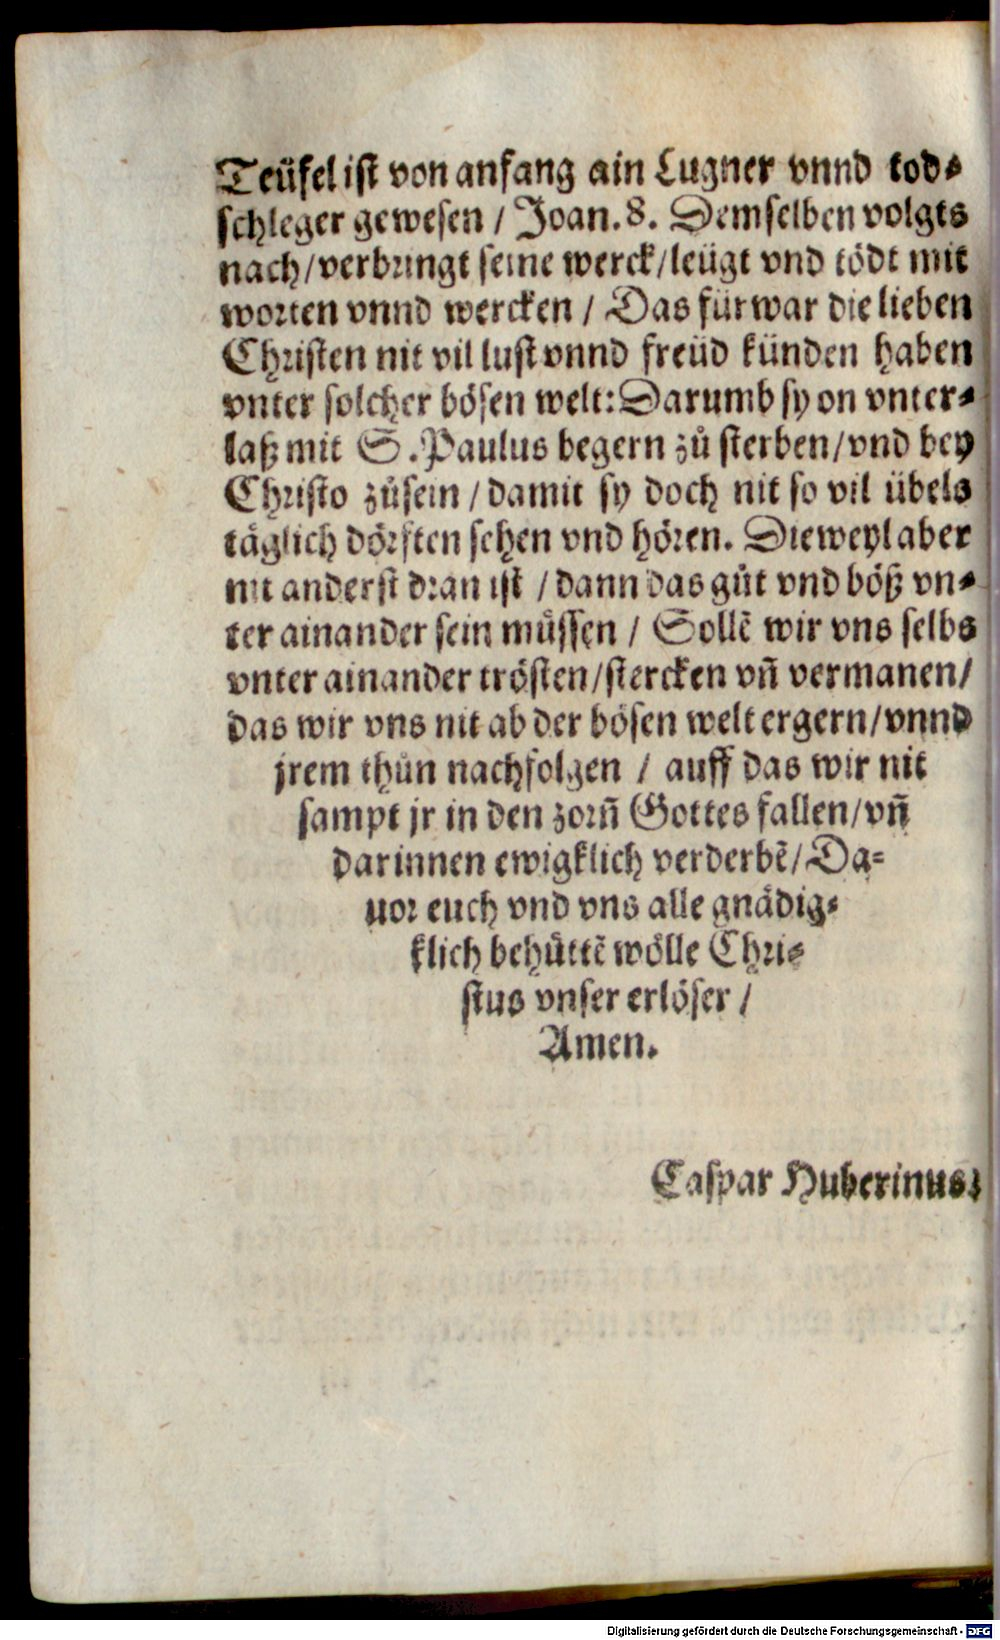 Teüfel ist von anfang ain Lugner vnnd tod⸗
schleger gewesen / Joan. 8. Demselben volgts
nach / verbringt seine werck / leügt vnd tödt mit
worten vnnd wercken / Das fürwar die lieben
Christen nit vil lust vnnd freüd künden haben
vnter solcher bösen welt: Darumb sy on vnter⸗
laß mit S. Paulus begern zů sterben / vnd bey
Christo zůsein / damit sy doch nit so vil übels
täglich dörfften sehen vnd hören. Dieweyl aber
nit anderst dran ist / dann das gůt vnd böß vn⸗
ter ainander sein müssen / Sollē wir vns selbs
vnter ainander trösten / stercken vñ vermanen /
das wir vns nit ab der bösen welt ergern / vnnd
jrem thůn nachfolgen / auff das wir nit
sampt jr in den zorñ Gottes fallen / vñ
darinnen ewigklich verderbē / Da⸗
uor euch vnd vns alle gnädig⸗
klich behüttē wölle Chri⸗
stus vnser erlöser /
Amen.
Caspar Huberinus.
Digitalisierung gefördert durch die Deutsche Forschungsgemeinschaft - DFG